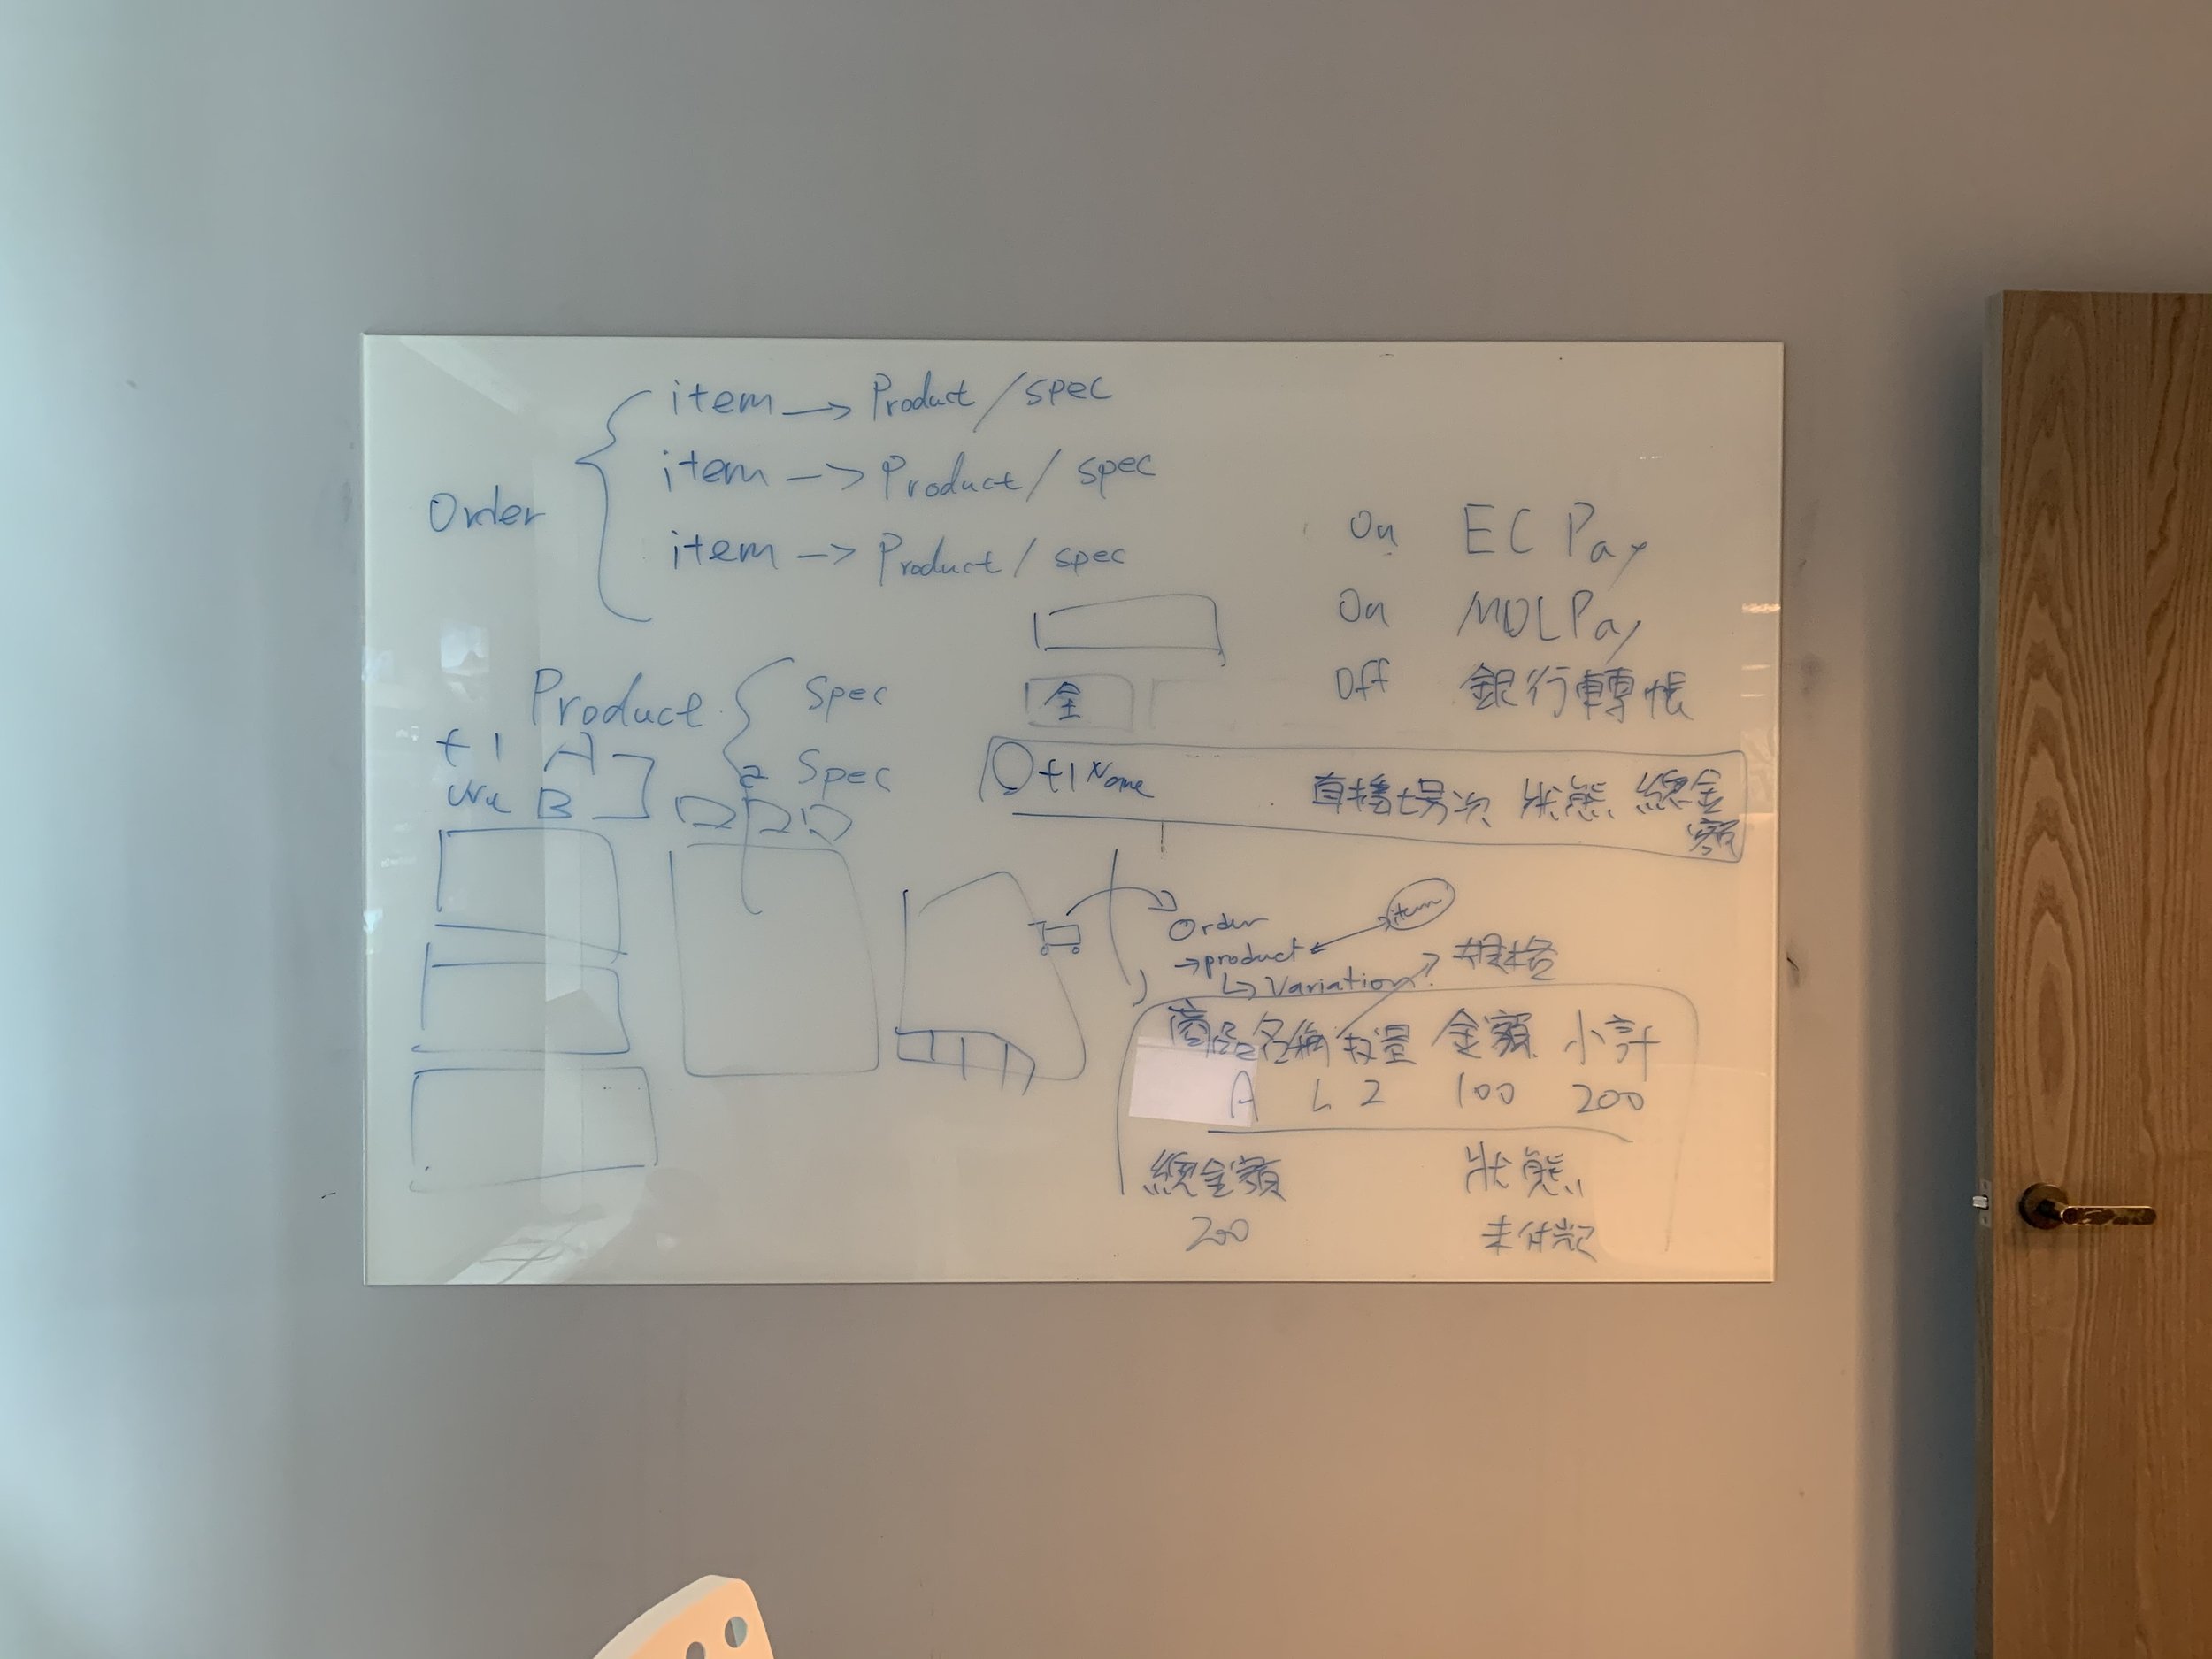 item → Product / spec
Order
item → Product / spec
item → Product / spec
Product
Spec
Spec
+1 A
B
On EC Pay
On MOLPay
Off 銀行轉帳
全
+1 Name 直播場次 狀態 總金額
Order
→ product
item
↳ Variation
規格
商品名稱 數量 金額 小計
A L 2 100 200
總金額 狀態
200 未付款